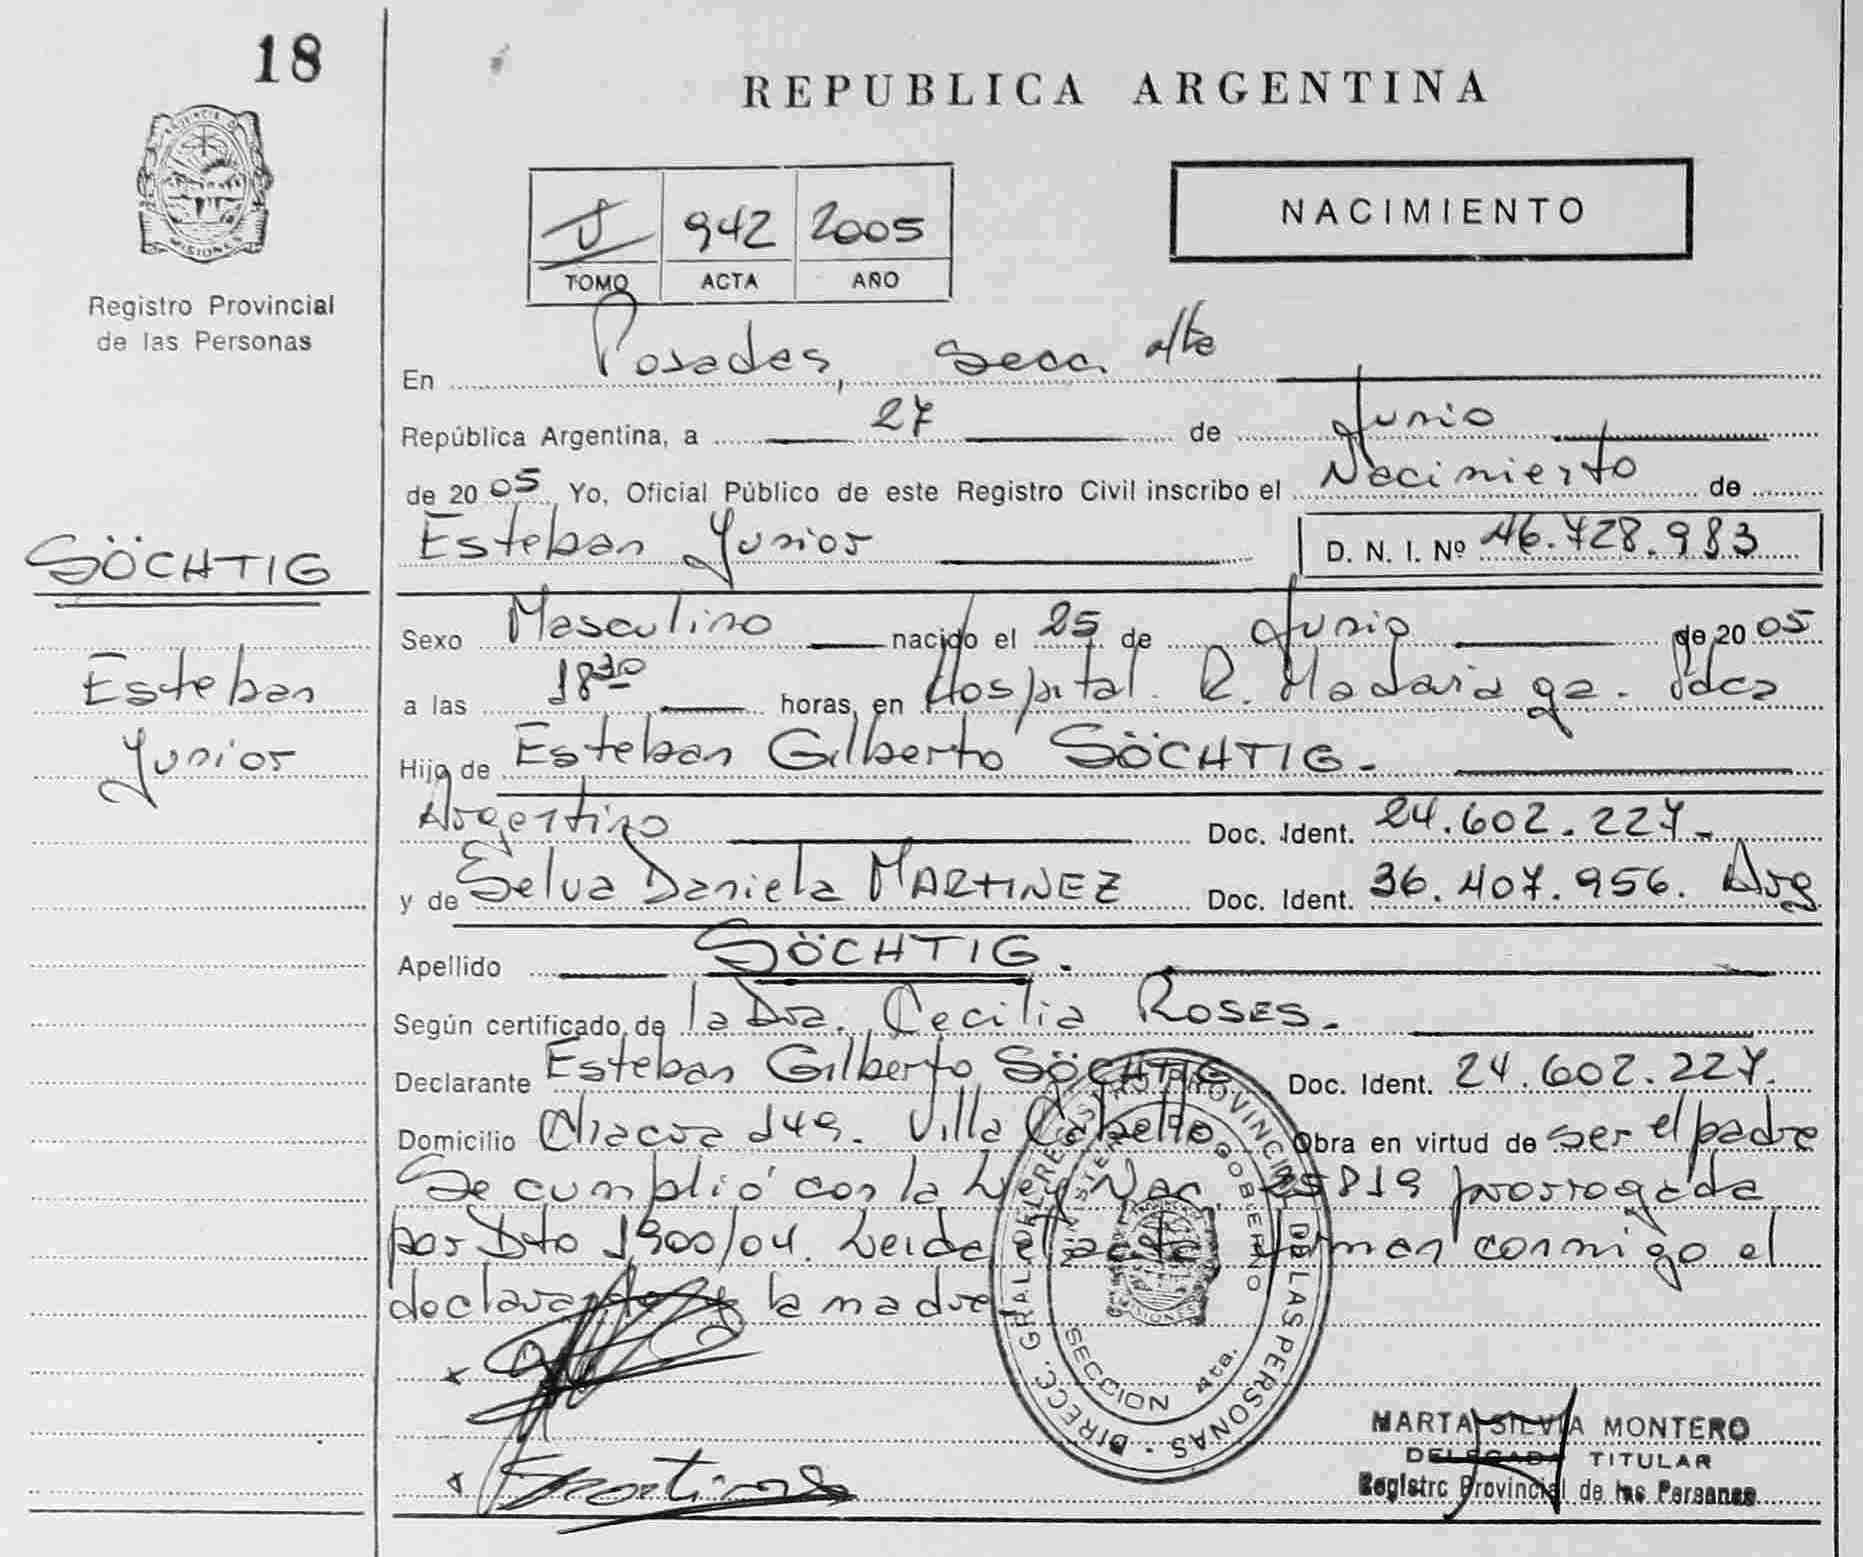 18
REPUBLICA ARGENTINA
PROVINCIA DE MISIONES
Registro Provincial
de las Personas
942 2005
TOMO ACTA AÑO
NACIMIENTO
En Posadas, Secc. 4ta
República Argentina, a 27 de Junio
de 2005 Yo, Oficial Público de este Registro Civil inscribo el Nacimiento de
Esteban Junior D. N. I. Nº 46.728.983
SÖCHTIG
Esteban
Junior
Sexo Masculino nacido el 25 de Junio de 2005
a las 18 30 horas, en Hospital. R. Madariaga. Pdas
Hijo de Esteban Gilberto SÖCHTIG.
Argentino Doc. Ident. 24.602.227.
y de Selva Daniela MARTINEZ Doc. Ident. 36.407.956. Arg
Apellido SÖCHTIG.
Según certificado de la Dra. Cecilia ROSES.
Declarante Esteban Gilberto SÖCHTIG Doc. Ident. 24.602.227.
Domicilio Chacra 149. Villa Cabello Obra en virtud de ser el padre
Se cumplió con la Ley Nac. 25819 prorrogada
por Dto 1900/04. Leida el acta firman conmigo el
declarante y la madre
DIRECC. GRAL DEL REGISTRO PROVINCIAL DE LAS PERSONAS
MINISTERIO DE GOBIERNO
SECCION 4ta.
MARTA SILVIA MONTERO
DELEGADA TITULAR
Registro Provincial de las Personas